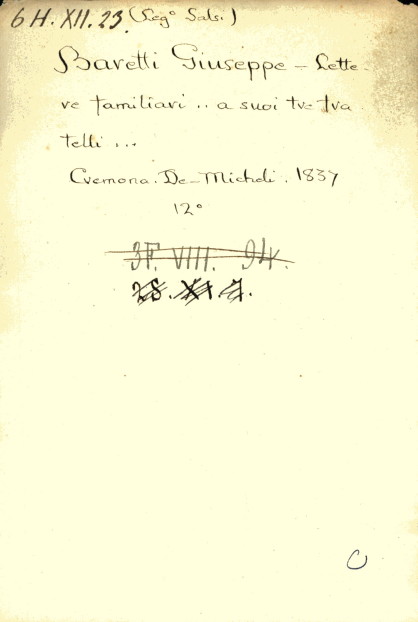 6 H. XII. 23. (Leg° Sals.)
Baretti Giuseppe - Lette-
re familiari .. a suoi tre fra
telli ...
Cremona. De-Micheli. 1837
12°
3F. VIII. 94.
28. XI. 7.
C